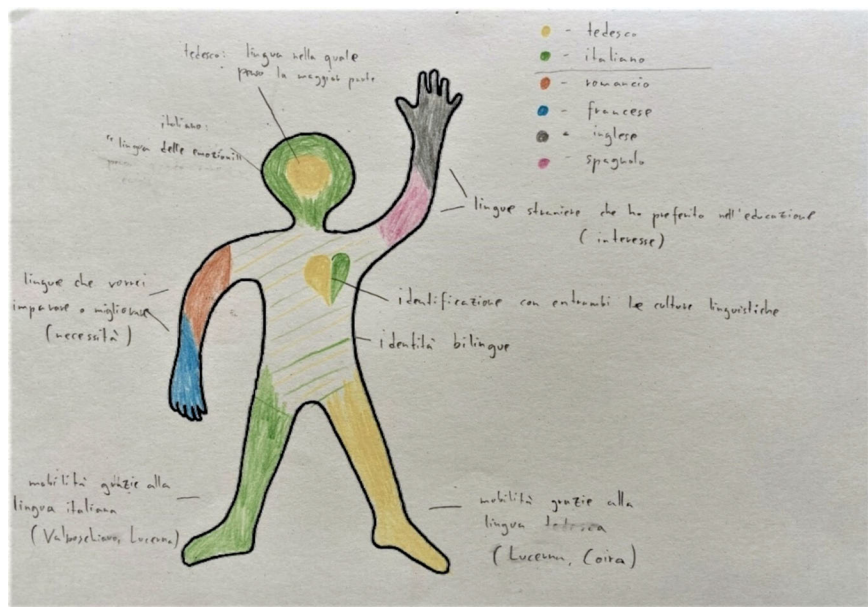 tedesco: lingua nella quale
penso la maggior parte
italiano:
"lingua delle emozioni"
- tedesco
- italiano
- romancio
- francese
- inglese
- spagnolo
lingue straniere che ho preferito nell'educazione
(interesse)
lingue che vorrei
imparare o migliorare
(necessità)
identificazione con entrambi le culture linguistiche
identità bilingue
mobilità grazie alla
lingua italiana
(Valposchiavo, Lucerna)
mobilità grazie alla
lingua tedesca
(Lucerna, Coira)